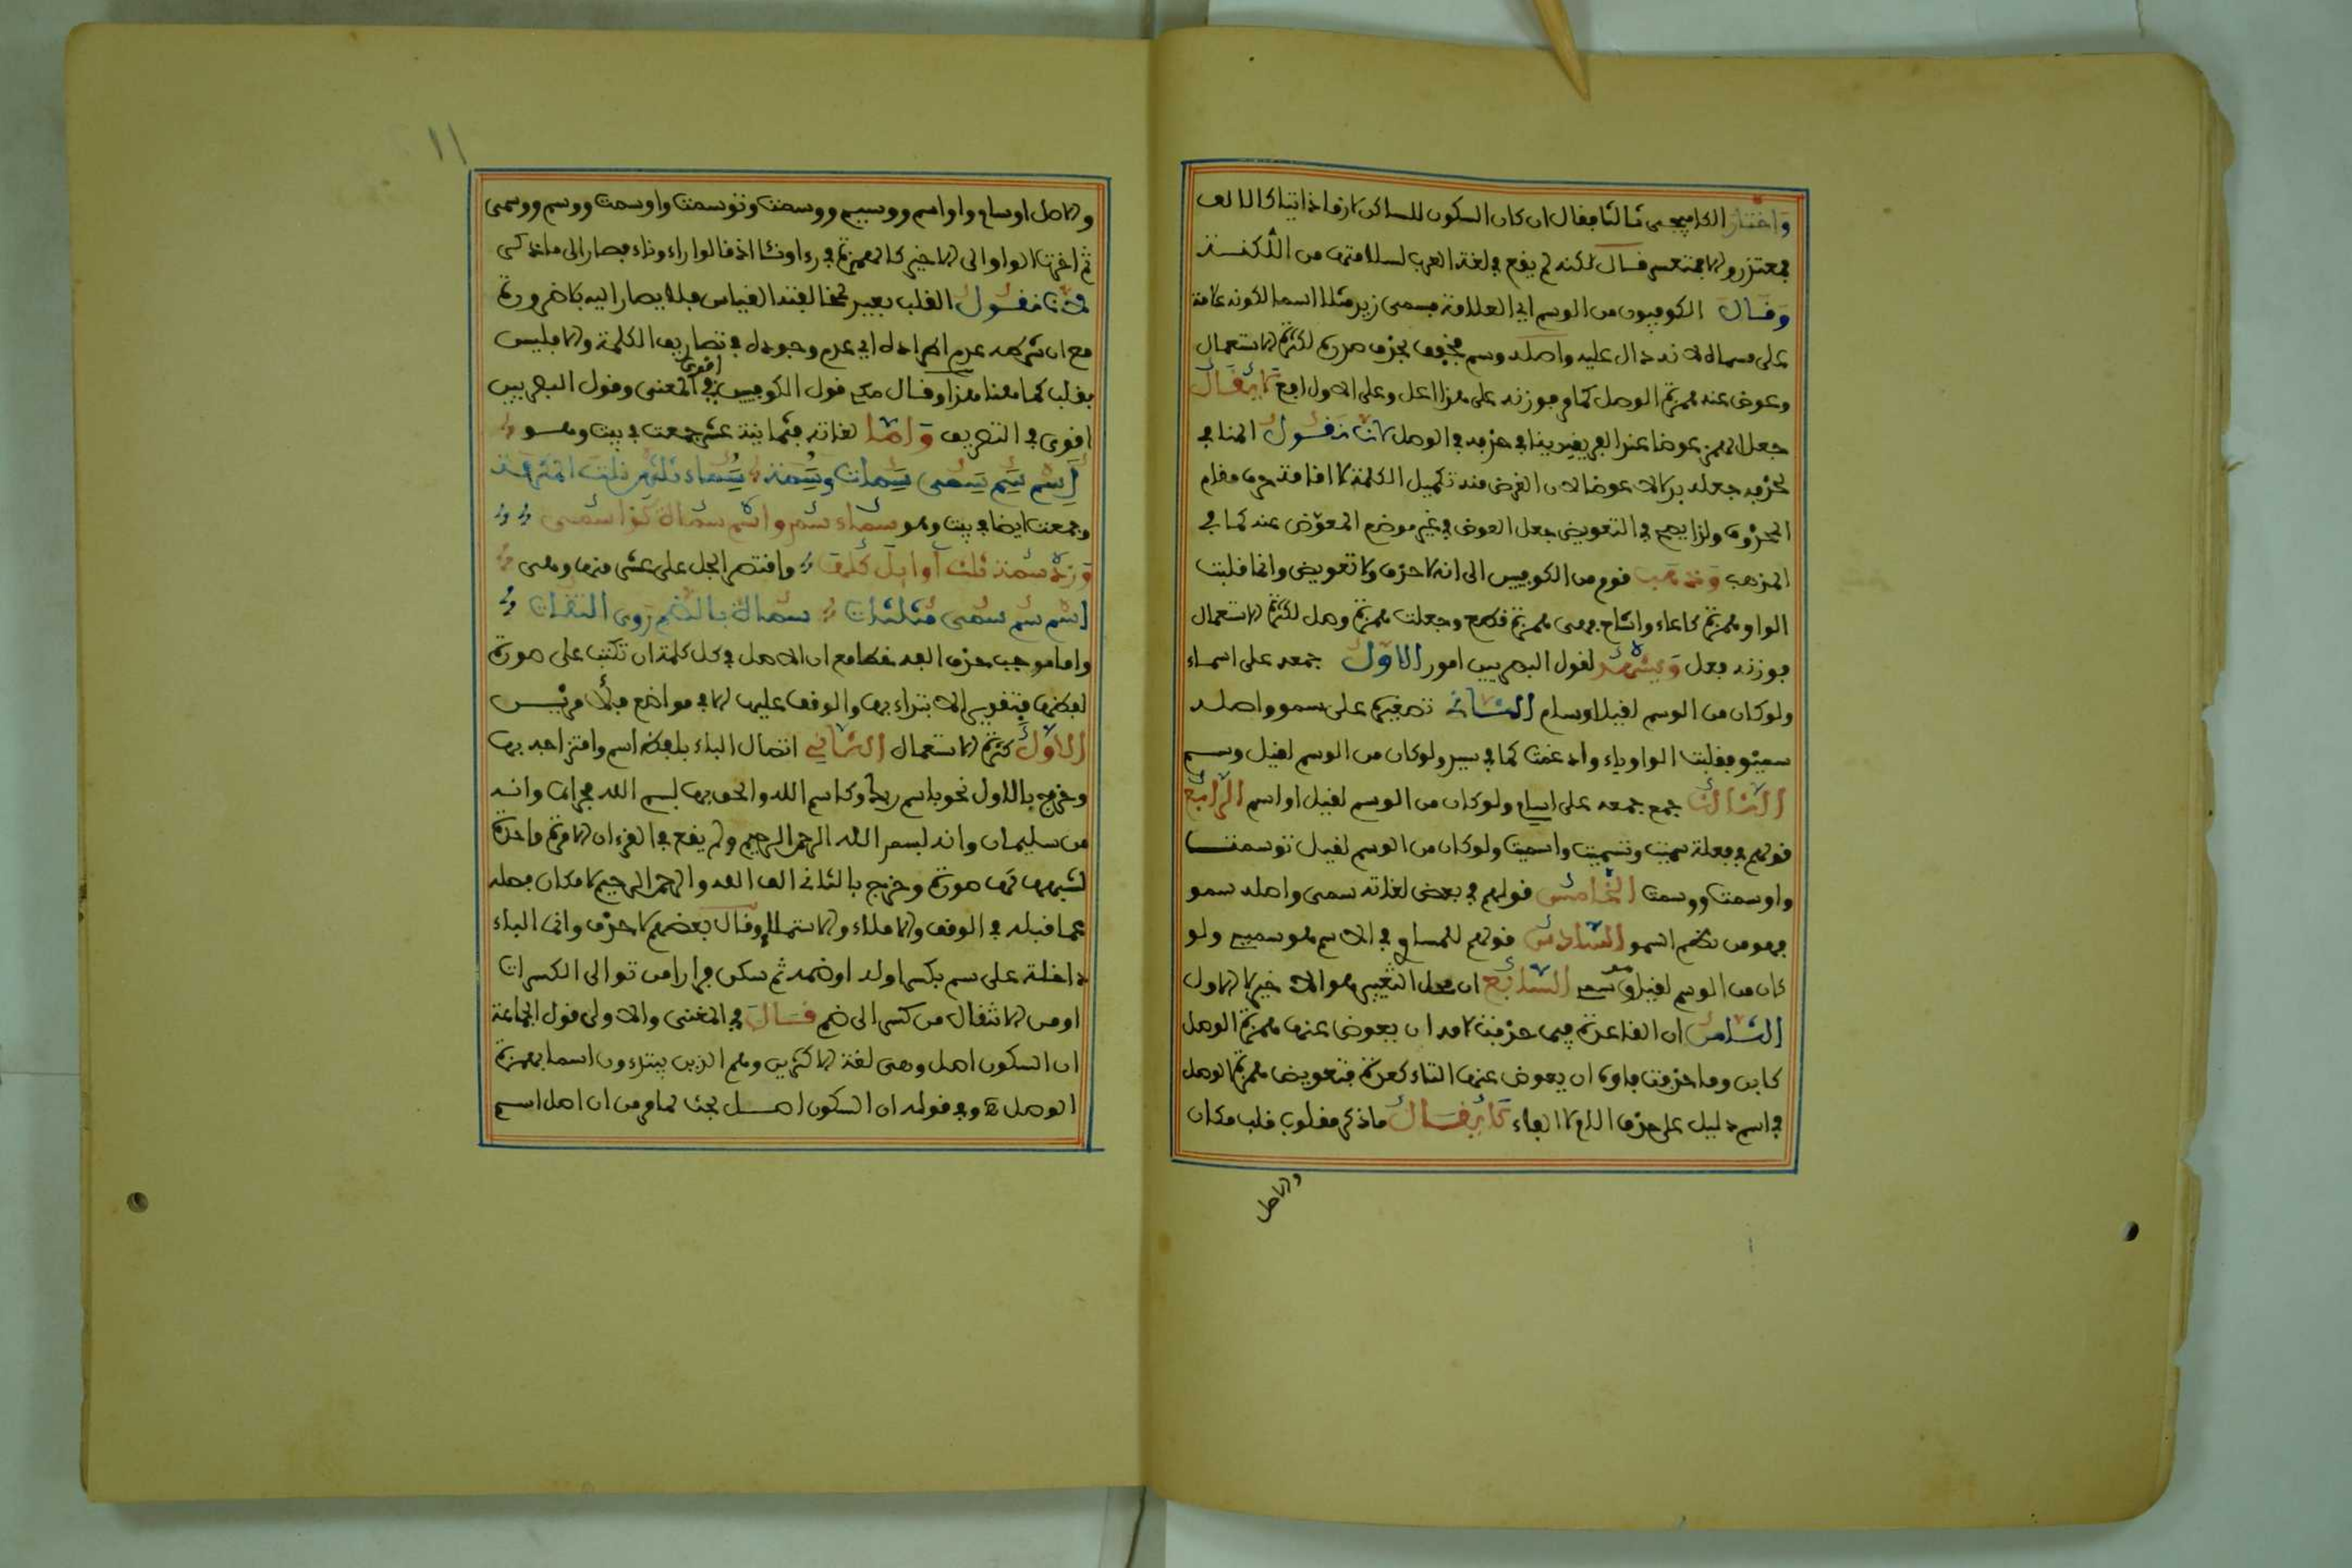 واختار الكافيجي ثالثا فقال ان كان السكون للساكن لازما ذاتيا كالالف
فمتعذر والا فمتعسر قال لكنه لم يقع في لغة العرب لسلامتها من اللكنة
وقال الكوفيون من الوسم اي العلامة فسمى زيد مثلا اسما لكونه علامة
على مسماه لانه دال عليه واصله وسم فخفف بحذف صدره لكثرة الاستعمال
وعوض عنه همزة الوصل كما مر فوزنه على هذا اعل وعلى الاول افع لا يقال
جعل الهمز عوضا عند الفريقين ينافي حذفه في الوصل لانا نقول المنافي
لحذفه جعله بدلا لا عوضا لان الغرض منه تكميل الكلمة لا اقامة حرف مقام
المحذوف ولذا يصح في التعويض جعل العوض في غير موضع المعوض عنه كما في
المذهب وذهب قوم من الكوفيين الى انه لا حذف ولا تعويض وانما قلبت
الواو همزة كاعاء واشاح فهي همزة قطع وجعلت همزة وصل لكثرة الاستعمال
فوزنه فعل ويشهد لقول البصريين امور الاول جمعه على اسماء
ولو كان من الوسم لقيل اوسام الثاني تصغيره على سمو واصله
سميو فقلبت الواو ياء وادغمت كما في سيد ولو كان من الوسم لقيل وسيم
الثالث جمع جمعه على اسام ولو كان من الوسم لقيل اواسم الرابع
قولهم في فعله سميت وتسميت واسميت ولو كان من الوسم لقيل توسمت
واوسمت ووسمت الخامس قولهم في بعض لغاته سمى واصله سمو
السادس قولهم للمساوي في الاسم هو سميه ولو
كان من الوسم لقيل هو وسيمه السابع ان محل التغيير هو الاخير لا الاول
الثامن ان القاعدة فيما حذفت لامه ان يعوض عنها همزة الوصل
كابن وما حذفت فاؤه ان يعوض عنها التاء كعدة فتعويض همزة الوصل
في اسم دليل على حذف اللام لا الفاء لا يقال ما ذكر مقلوب قلب مكان
والاصل
١١
والاصل اوسام واواسم ووسيم ووسمت وتوسمت واوسمت ووسم ووسمى
ثم اخرت الواو الى الاخير كالهمزة في رءا ونئا اذ قالوا راء وناء فصار الى ما ذكر
لانا نقول القلب بعيد لمخالفته القياس فلا يصار اليه بلا ضرورة
مع ان شرطه عدم اطراده اي عدم وجوده في تصاريف الكلمة والا فليس
بقلب كما هنا هذا وقال مكي قول الكوفيين اقوى في المعنى وقول البصريين
اقوى في التصريف واما لغاته فثمانية عشر جمعت في بيت وهو
اسم سم سمى سمات وسمة سماء ثلثهن نلت المكرمة
وجمعت ايضا في بيت وهو سماء سم واسم سماة كذا سمى
وزد سمة ثلث اوايل كلها واقتصر الجل على عشر منها وهي
اسم سم سمى مثلثات سماة بالضم روى الثقات
واما موجب حذف الفه خطا مع ان الاصل في كل كلمة ان تكتب على صورة
لفظها بتقدير الابتداء بها والوقف عليها الا في مواضع فلامرين
الاول كثرة الاستعمال الثاني اتصال الباء بلفظ اسم وامتزاجه بها
وخرج بالاول نحو باسم ربك وكاسم الله والحق بها بسم الله مجراها وانه
من سليمان وانه بسم الله الرحمن الرحيم ولم يقع في القرءان الا مرة واحدة
لشبهها بها صورة وخرج بالثاني الف الله والرحمن الرحيم لامكان فصله
عما قبله في الوقف والاملاء والاستملاء وقال بعضهم لا حذف وانما الباء
داخلة على سم بكسر اوله او ضمه ثم سكن فرارا من توالى الكسرات
او من الانتقال من كسر الى ضم قال في المغني والاولى قول الجماعة
ان السكون اصل وهي لغة الاكثرين وهم الذين يبتدءون اسما بهمزة
الوصل ه وفي قوله ان السكون اصل بحث لما مر من ان اصل اسم